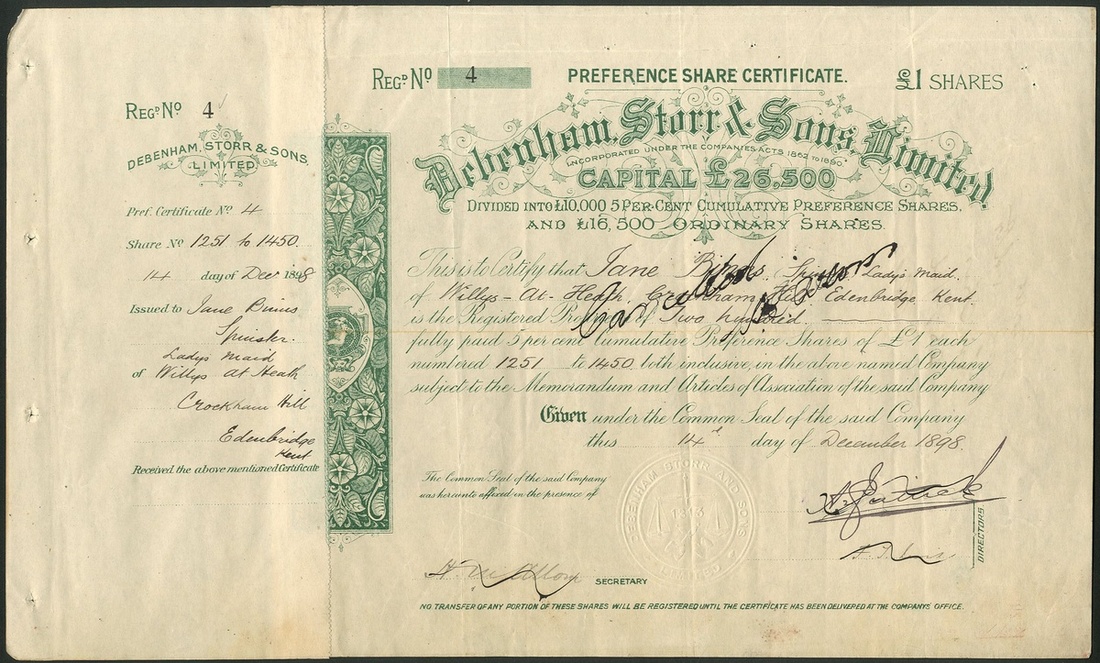 REGD NO 4
DEBENHAM, STORR & SONS,
LIMITED.
Pref. Certificate No 4
Share No 1251 to 1450.
14 day of Decr 1898
Issued to Jane Binns
Spinster
Lady's Maid
of Willys At Heath
Crockham Hill
Edenbridge
Kent
Received the above mentioned Certificate
REGD NO 4
PREFERENCE SHARE CERTIFICATE.
£1 SHARES
Debenham, Storr & Sons, Limited.
INCORPORATED UNDER THE COMPANIES ACTS 1862 TO 1890.
CAPITAL £26,500
DIVIDED INTO £10,000 5 PER CENT CUMULATIVE PREFERENCE SHARES,
AND £16,500 ORDINARY SHARES.
This is to Certify that Jane Binns, Spinster, Lady's Maid.
of Willys - At - Heath, Crockham Hill, Edenbridge Kent.
is the Registered Proprietor of Two hundred
Cancelled
fully paid 5 per cent Cumulative Preference Shares of £1 each
numbered 1251 to 1450 both inclusive, in the above named Company
subject to the Memorandum and Articles of Association of the said Company
Given under the Common Seal of the said Company
this 14th day of December 1898.
The Common Seal of the said Company
was hereunto affixed in the presence of
DEBENHAM STORR AND SONS
1813
LIMITED
DIRECTORS
SECRETARY
NO TRANSFER OF ANY PORTION OF THESE SHARES WILL BE REGISTERED UNTIL THE CERTIFICATE HAS BEEN DELIVERED AT THE COMPANYS OFFICE.